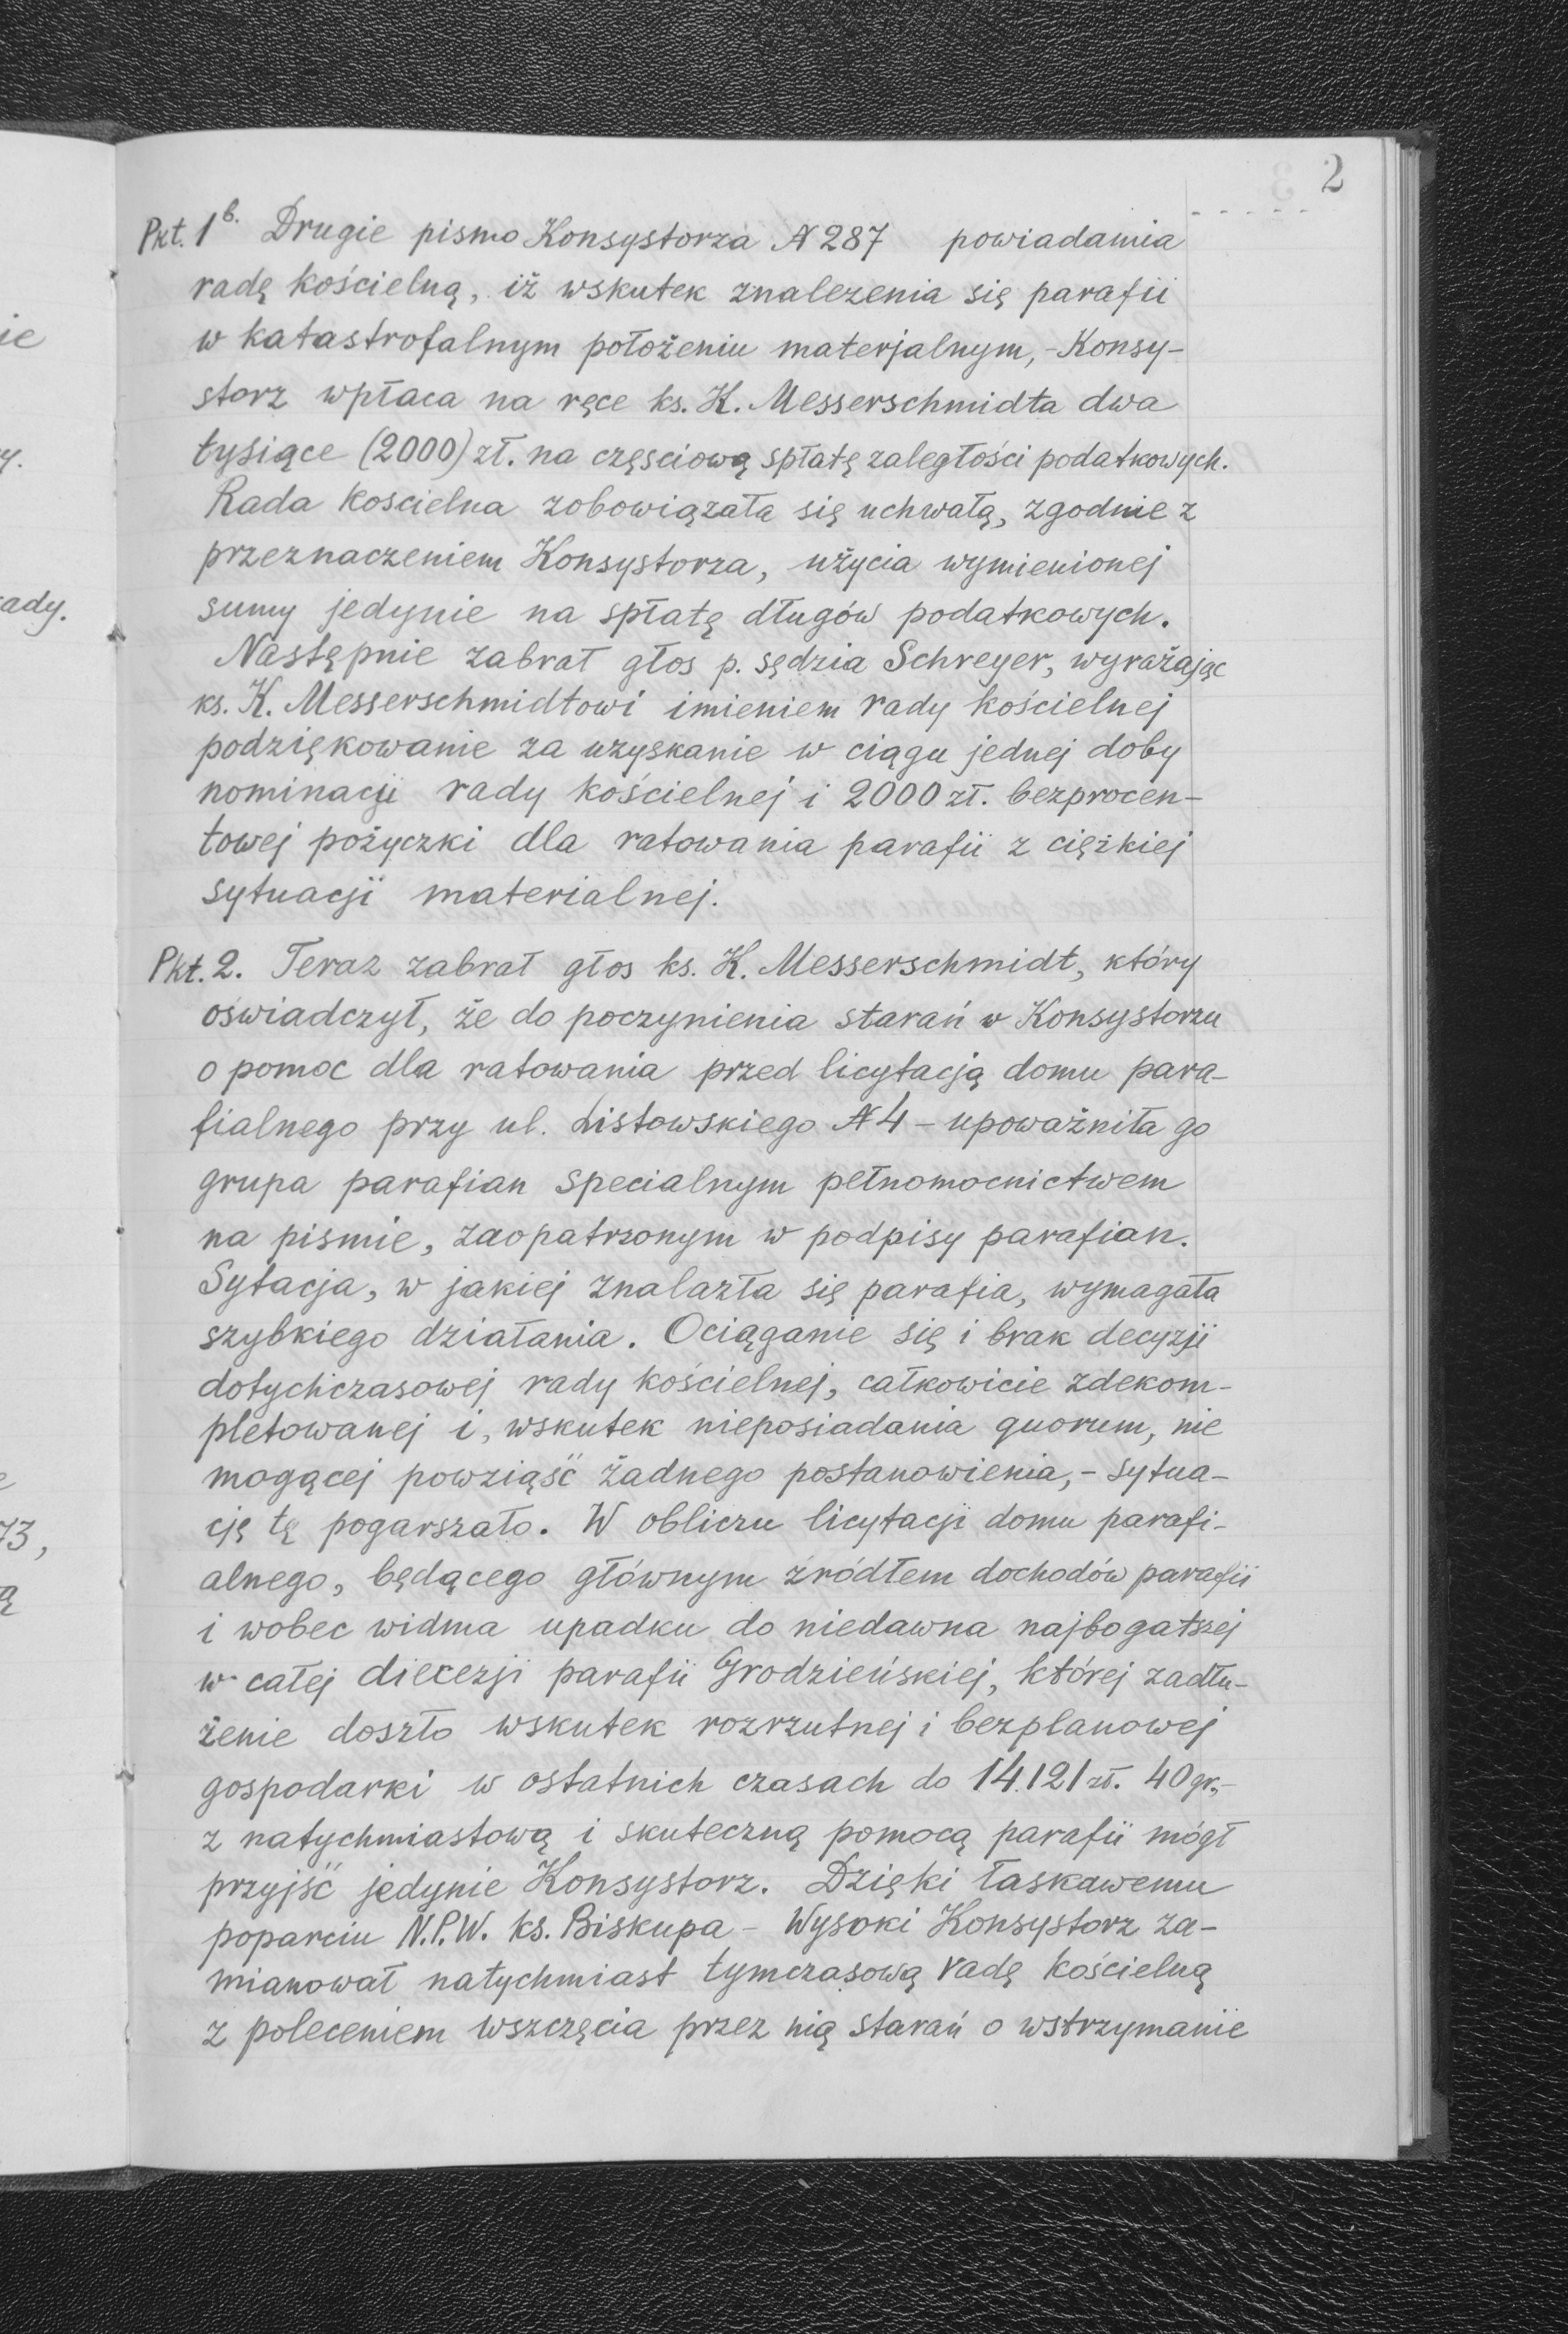 2
Pkt. 1b. Drugie pismo Konsystorza N 287 powiadamia
radę kościelną, iż wskutek znalezenia się parafii
w katastrofalnym położeniu materjalnym, - Konsy-
storz wpłaca na ręce ks. K. Messerschmidta dwa
tysiące (2000) zł. na częsciową spłatę zaległości podatkowych.
Rada koscielna zobowiązała się uchwałą, zgodnie z
przeznaczeniem Konsystorza, użycia wymienionej
sumy jedynie na spłatę długów podatkowych.
Następnie zabrał głos p. sędzia Schreyer, wyrażając
ks. K. Messerschmidtowi imieniem rady kościelnej
podziękowanie za uzyskanie w ciągu jednej doby
nominacji rady kościelnej i 2000 zł. bezprocen-
towej pożyczki dla ratowania parafii z ciężkiej
sytuacji materialnej.
Pkt. 2. Teraz zabrał głos ks. K. Messerschmidt, który
oświadczył, że do poczynienia starań w Konsystorzu
o pomoc dla ratowania przed licytacją domu para-
fialnego przy ul. Listowskiego N 4 - upoważniła go
grupa parafian specialnym pełnomocnictwem
na pismie, zaopatrzonym w podpisy parafian.
Sytacja, w jakiej znalazła się parafia, wymagała
szybkiego działania. Ociąganie się i brak decyzji
dotychczasowej rady kościelnej, całkowicie zdekom-
pletowanej i, wskutek nieposiadania quorum, nie
mogącej powziąść żadnego postanowienia, - sytua-
cję tę pogarszało. W obliczu licytacji domu parafi-
alnego, będącego głównym źródłem dochodów parafii
i wobec widma upadku do niedawna najbogatszej
w całej diecezji parafii Grodzieńskiej, której zadłu-
żenie doszło wskutek rozrzutnej i bezplanowej
gospodarki w ostatnich czasach do 14.121 zł. 40 gr, -
z natychmiastową i skuteczną pomocą parafii mógł
przyjść jedynie Konsystorz. Dzięki łaskawemu
poparciu N.P.W. ks. Biskupa - Wysoki Konsystorz za-
mianował natychmiast tymczasową radę kościelną
z poleceniem wszczęcia przez nią starań o wstrzymanie
ie
y.
ady.
73,